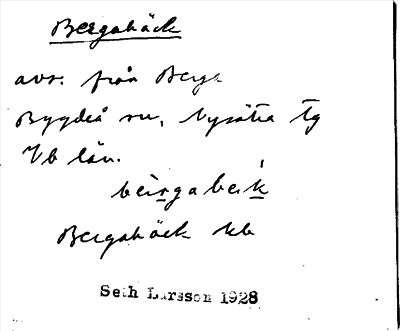 Bergabäck
avs. från Berga
Bygdeå sn, Nysätra tg
Vb län.
be̍rgabek
Bergabäck kb
Seth Larsson 1928